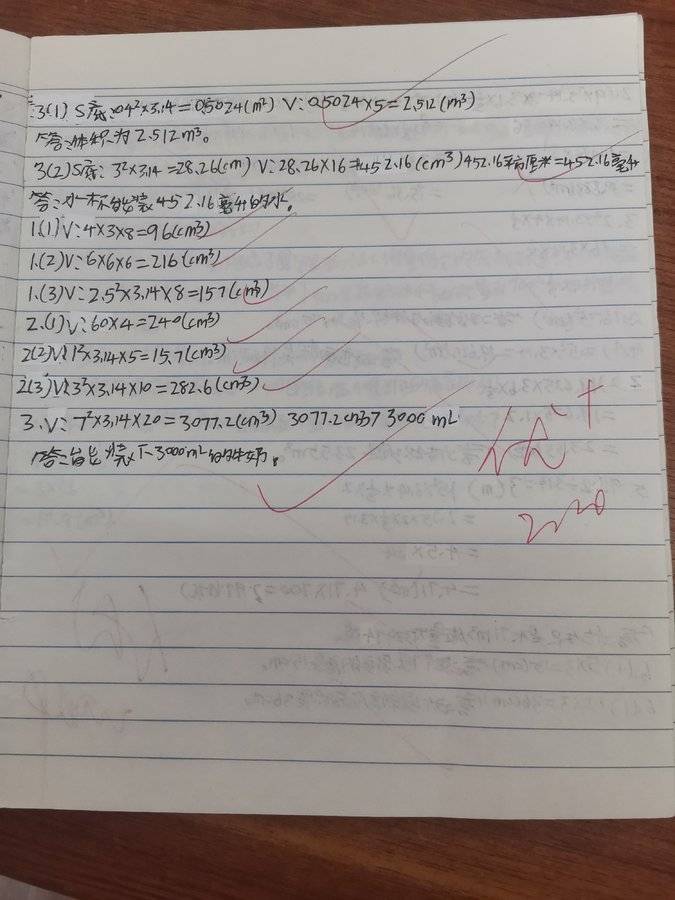 3(1) S底:0.4²×3.14=0.5024(m²) V:0.5024×5=2.512(m³)
答:体积为2.512m³。
3(2)S底:3²×3.14=28.26(cm) V:28.26×16=452.16(cm³)452.16立方厘米=452.16毫升
答:水杯能装452.16毫升的水。
1.(1)V:4×3×8=96(cm³)
1.(2)V:6×6×6=216(cm³)
1.(3)V:2.5²×3.14×8=157(cm³)
2.(1)V:60×4=240(cm³)
2(2)V:1²×3.14×5=15.7(cm³)
2(3)V:3²×3.14×10=282.6(cm³)
3.V:7²×3.14×20=3077.2(cm³) 3077.2cm³>3000mL
答:能装下3000mL的牛奶。
优+